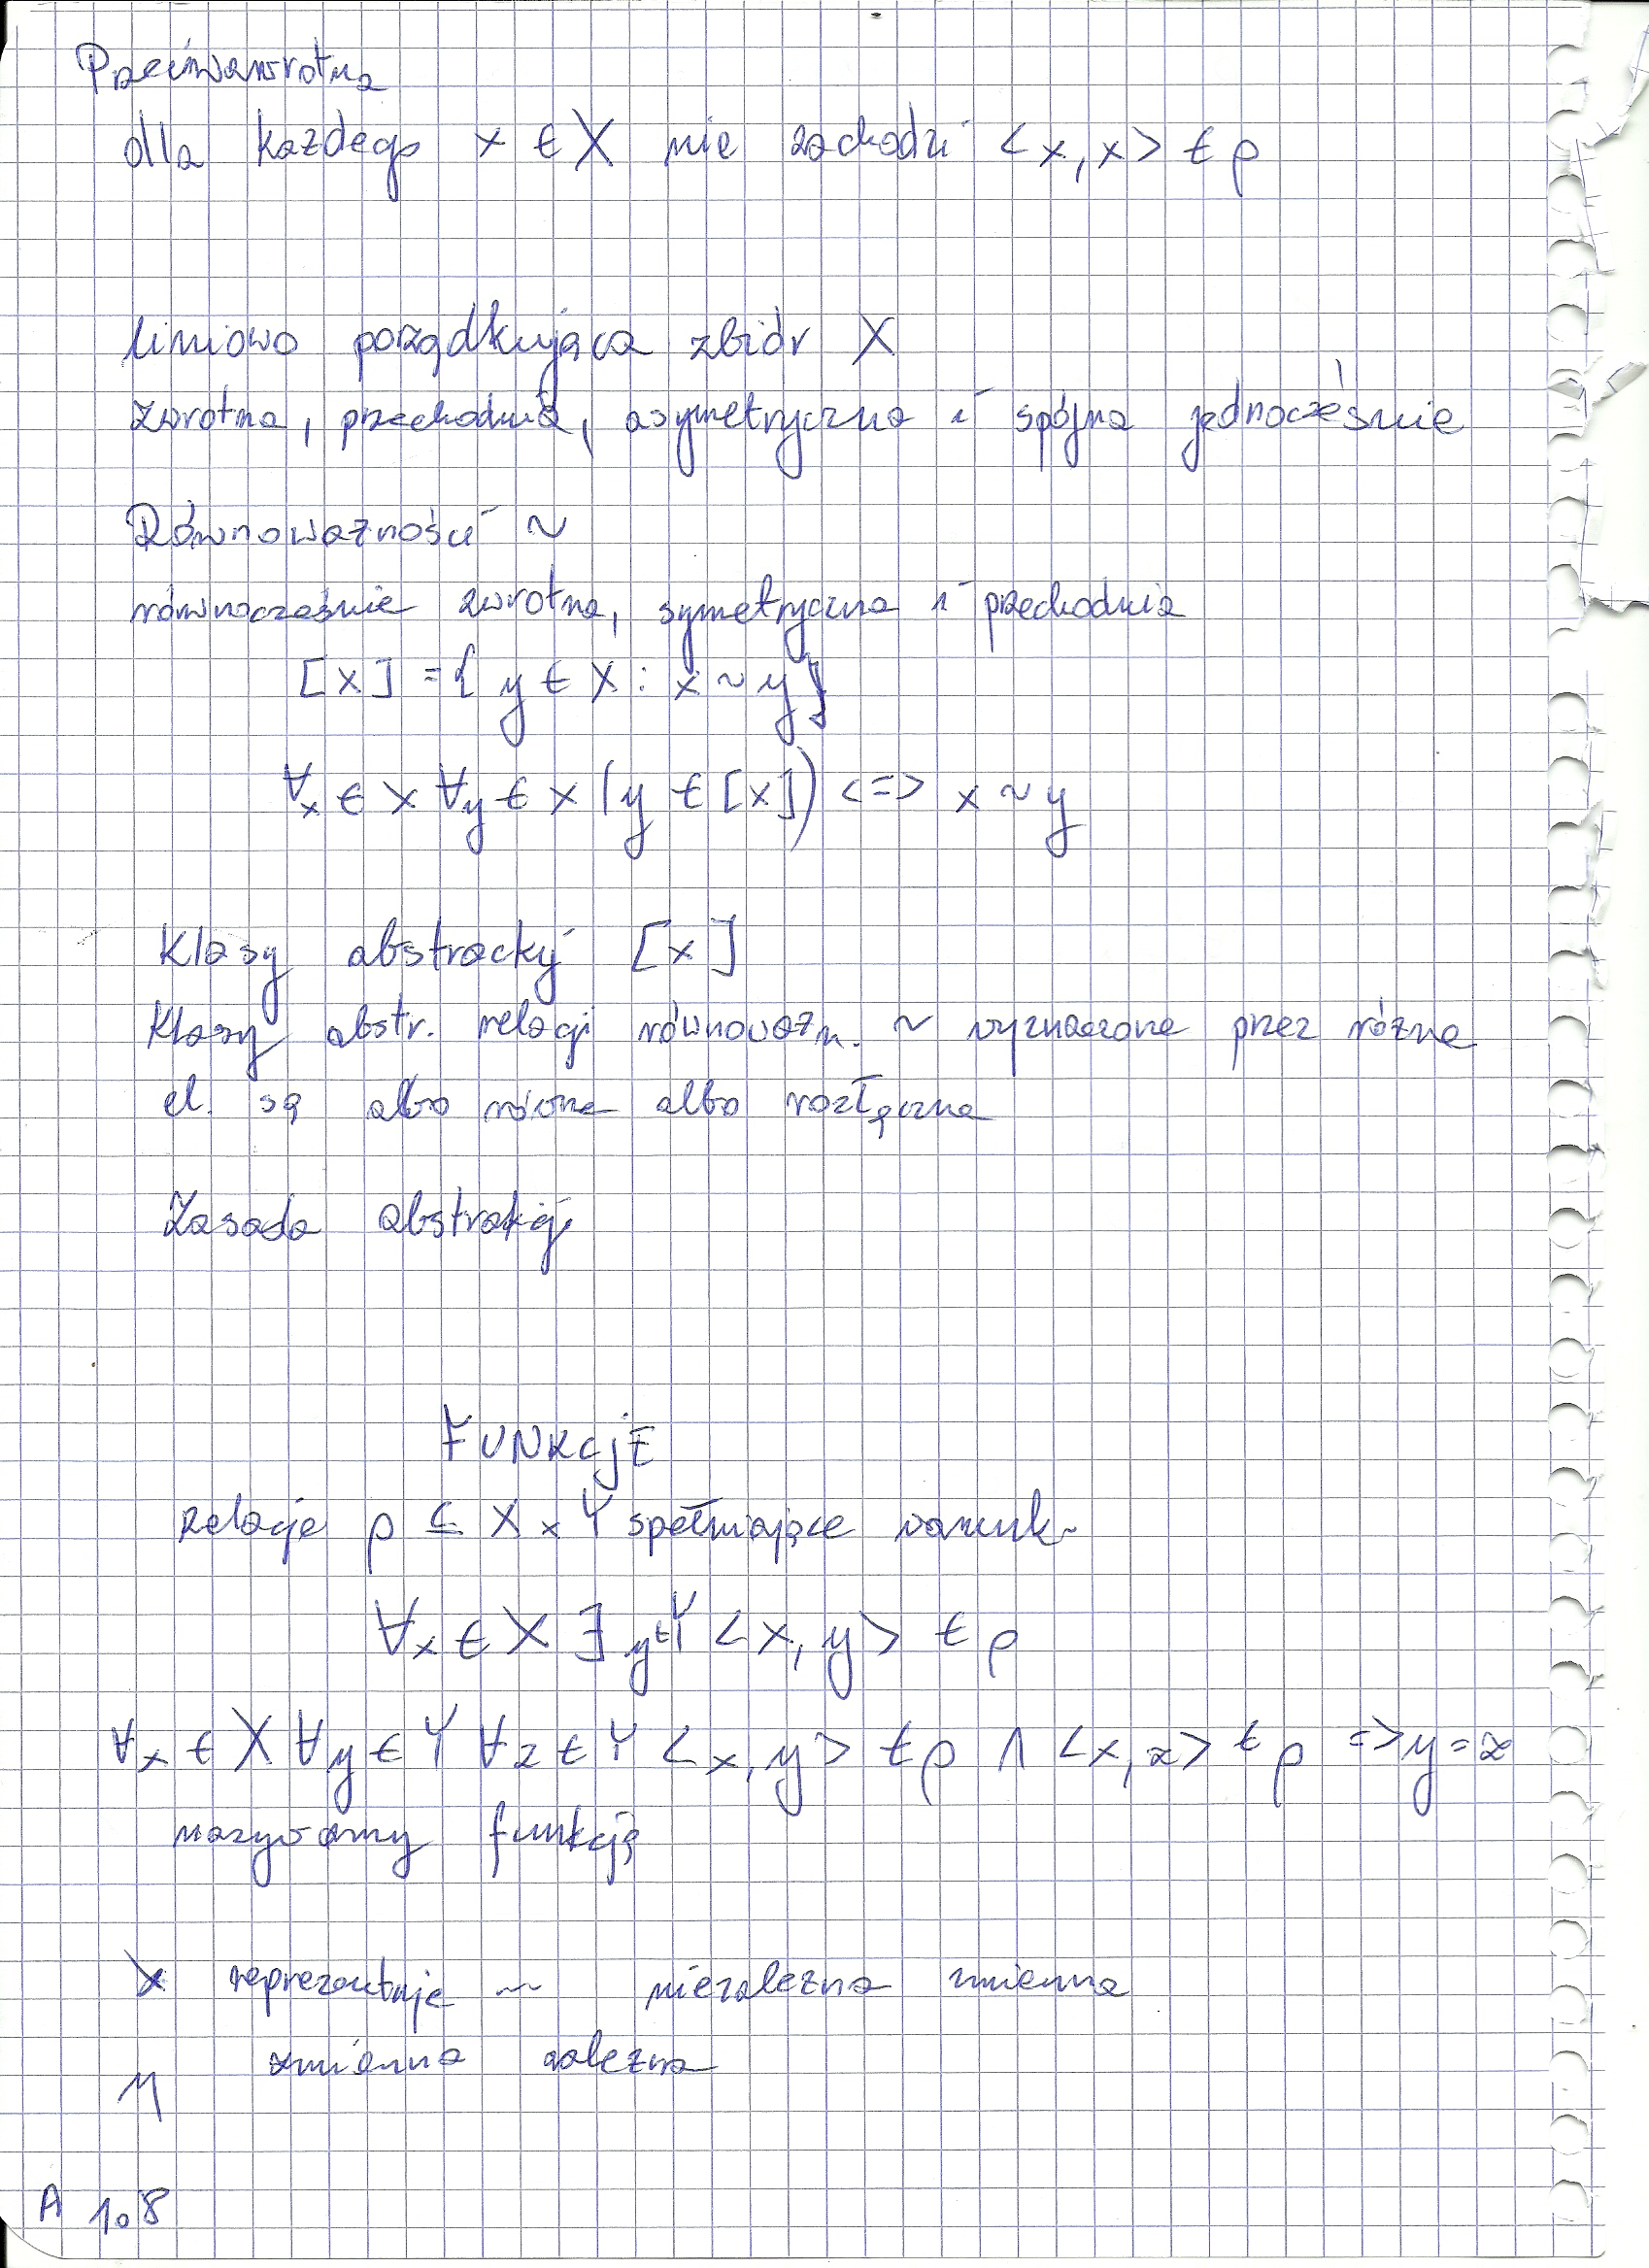 Przeciwzwrotna
dla każdego x ∈ X nie zachodzi <x,x> ∈ ρ
liniowo porządkująca zbiór X
zwrotna, przechodnia, asymetryczna i spójna jednocześnie
Równoważności ~
równocześnie zwrotna, symetryczna i przechodnia
[x] = { y ∈ X : x ~ y}
∀x ∈ X ∀y ∈ X (y ∈ [x]) <=> x ~ y
Klasy abstrackyj [x]
Klasy abstr. relacji równoważn. ~ wyznaczone przez różne
el. są albo równe albo rozłączne
Zasada abstrakcji
FUNKCJE
relacje ρ ⊆ X × Y spełniające warunk
∀x ∈ X ∃ y∈Y <x, y> ∈ ρ
∀x ∈ X ∀y ∈ Y ∀z ∈ Y <x, y> ∈ ρ ∧ <x, z> ∈ ρ => y = z
nazywamy funkcją
x reprezentuje ~ niezależna zmienna
zmienna zależna
y
A 1.8